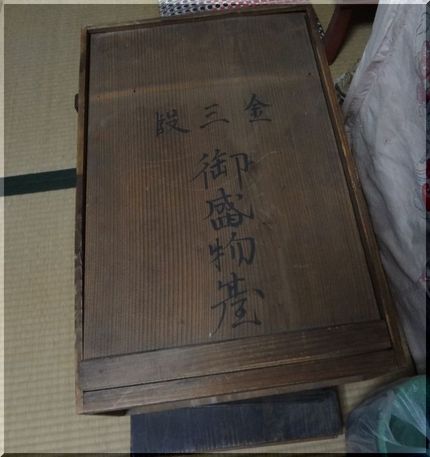 金三段
御盛物臺